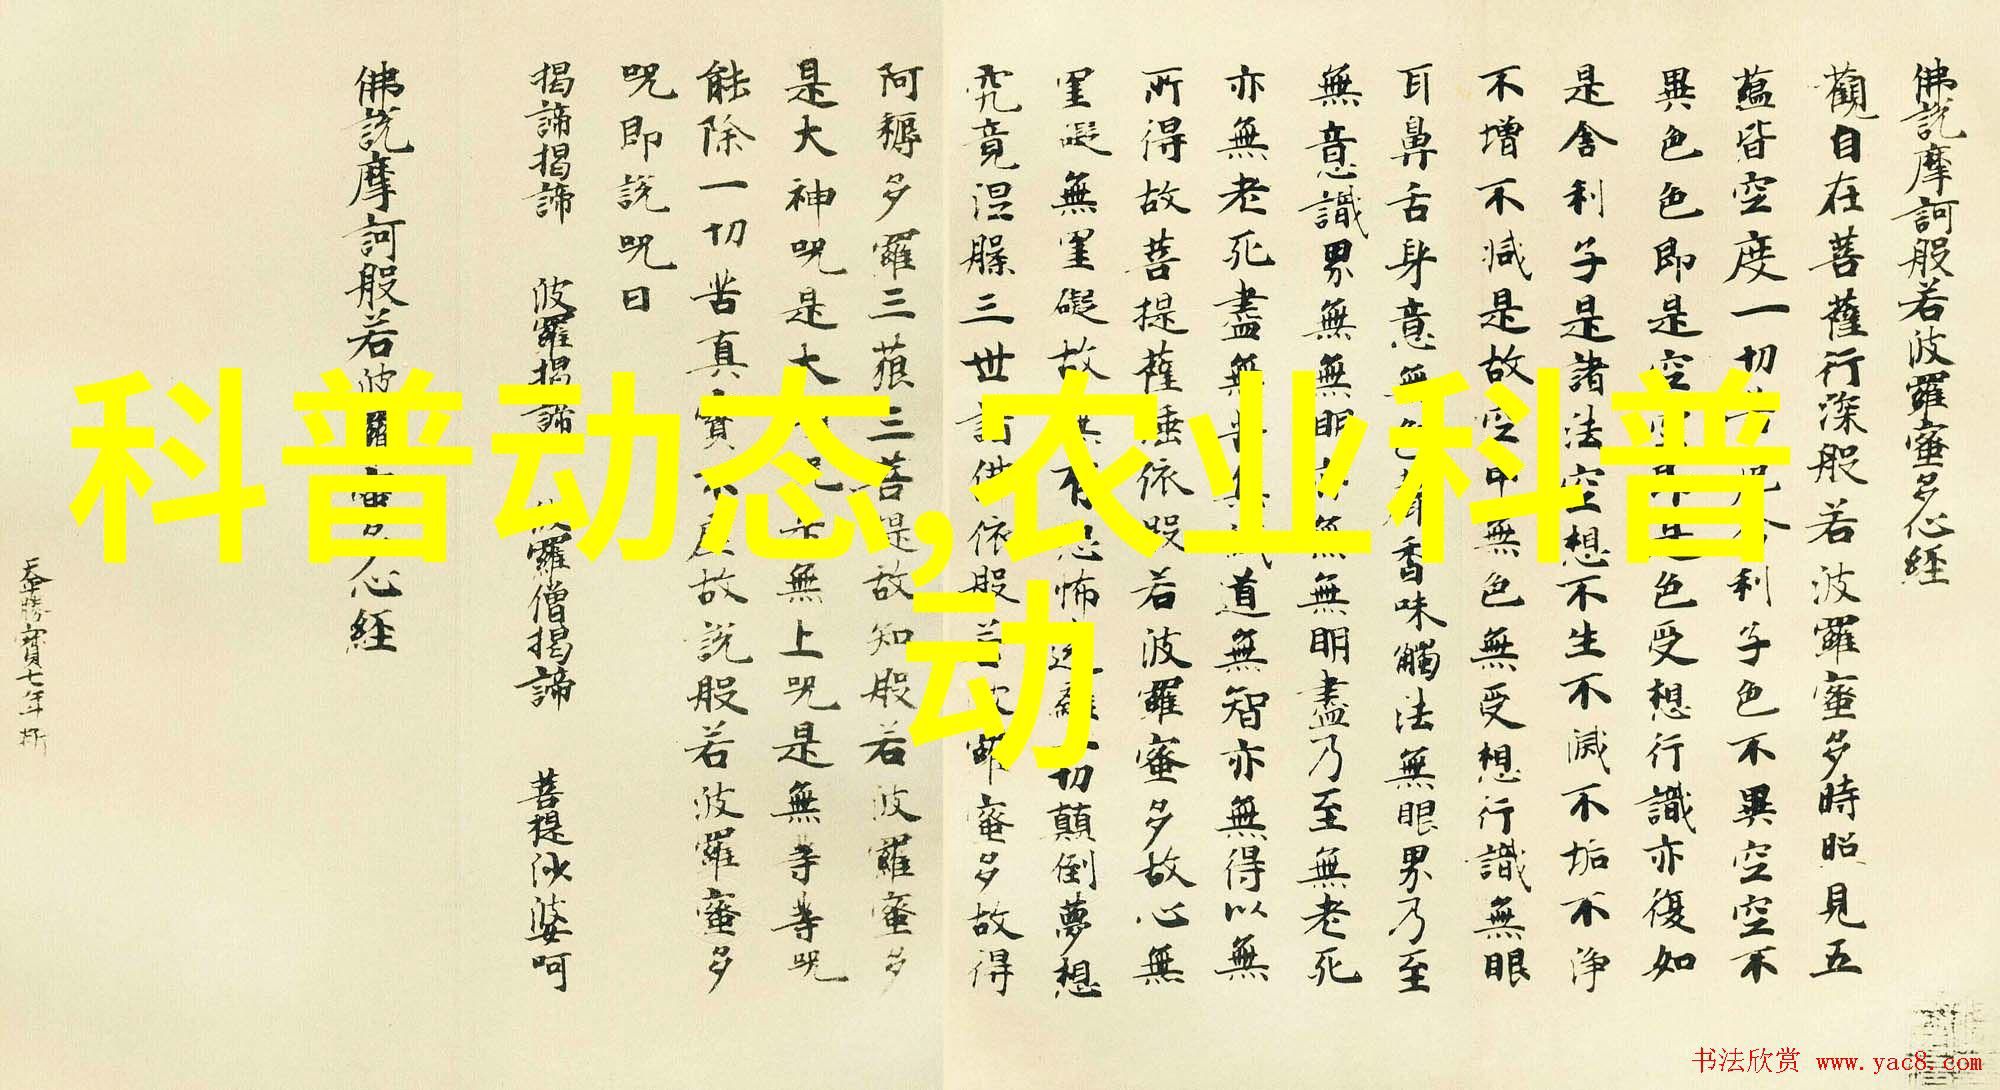 佛說摩訶般若波羅蜜多心經
觀自在菩薩行深般若波羅蜜多時照見五
蘊皆空度一切利子色不異空空不
異色色即是空空即是色受想行識亦復如
是舍利子是諸法空想不生不滅不垢不淨
不增不減是故空中無色無受想行識無眼
耳鼻舌身意無色聲香味觸法無眼界乃至
無意識界無無明亦無無明盡乃至無老死
亦無老死盡無苦集滅道無智亦無得以無
所得故菩提薩埵依般若波羅蜜多故心無
罣礙無罣礙故無有恐怖遠離一切顛倒夢想
究竟涅槃三世諸佛依般若波羅蜜多故得
阿耨多羅三藐三菩提故知般若波羅蜜多
是大神咒是大明咒是無上咒是無等等咒
能除一切苦真實不虛故說般若波羅蜜多
咒即說咒曰
揭諦揭諦 波羅揭諦 波羅僧揭諦 菩提沙婆呵
佛說摩訶般若波羅蜜多心經
勝寶七年
科普动态,农业科普
动
书法欣赏 www.yac8.com